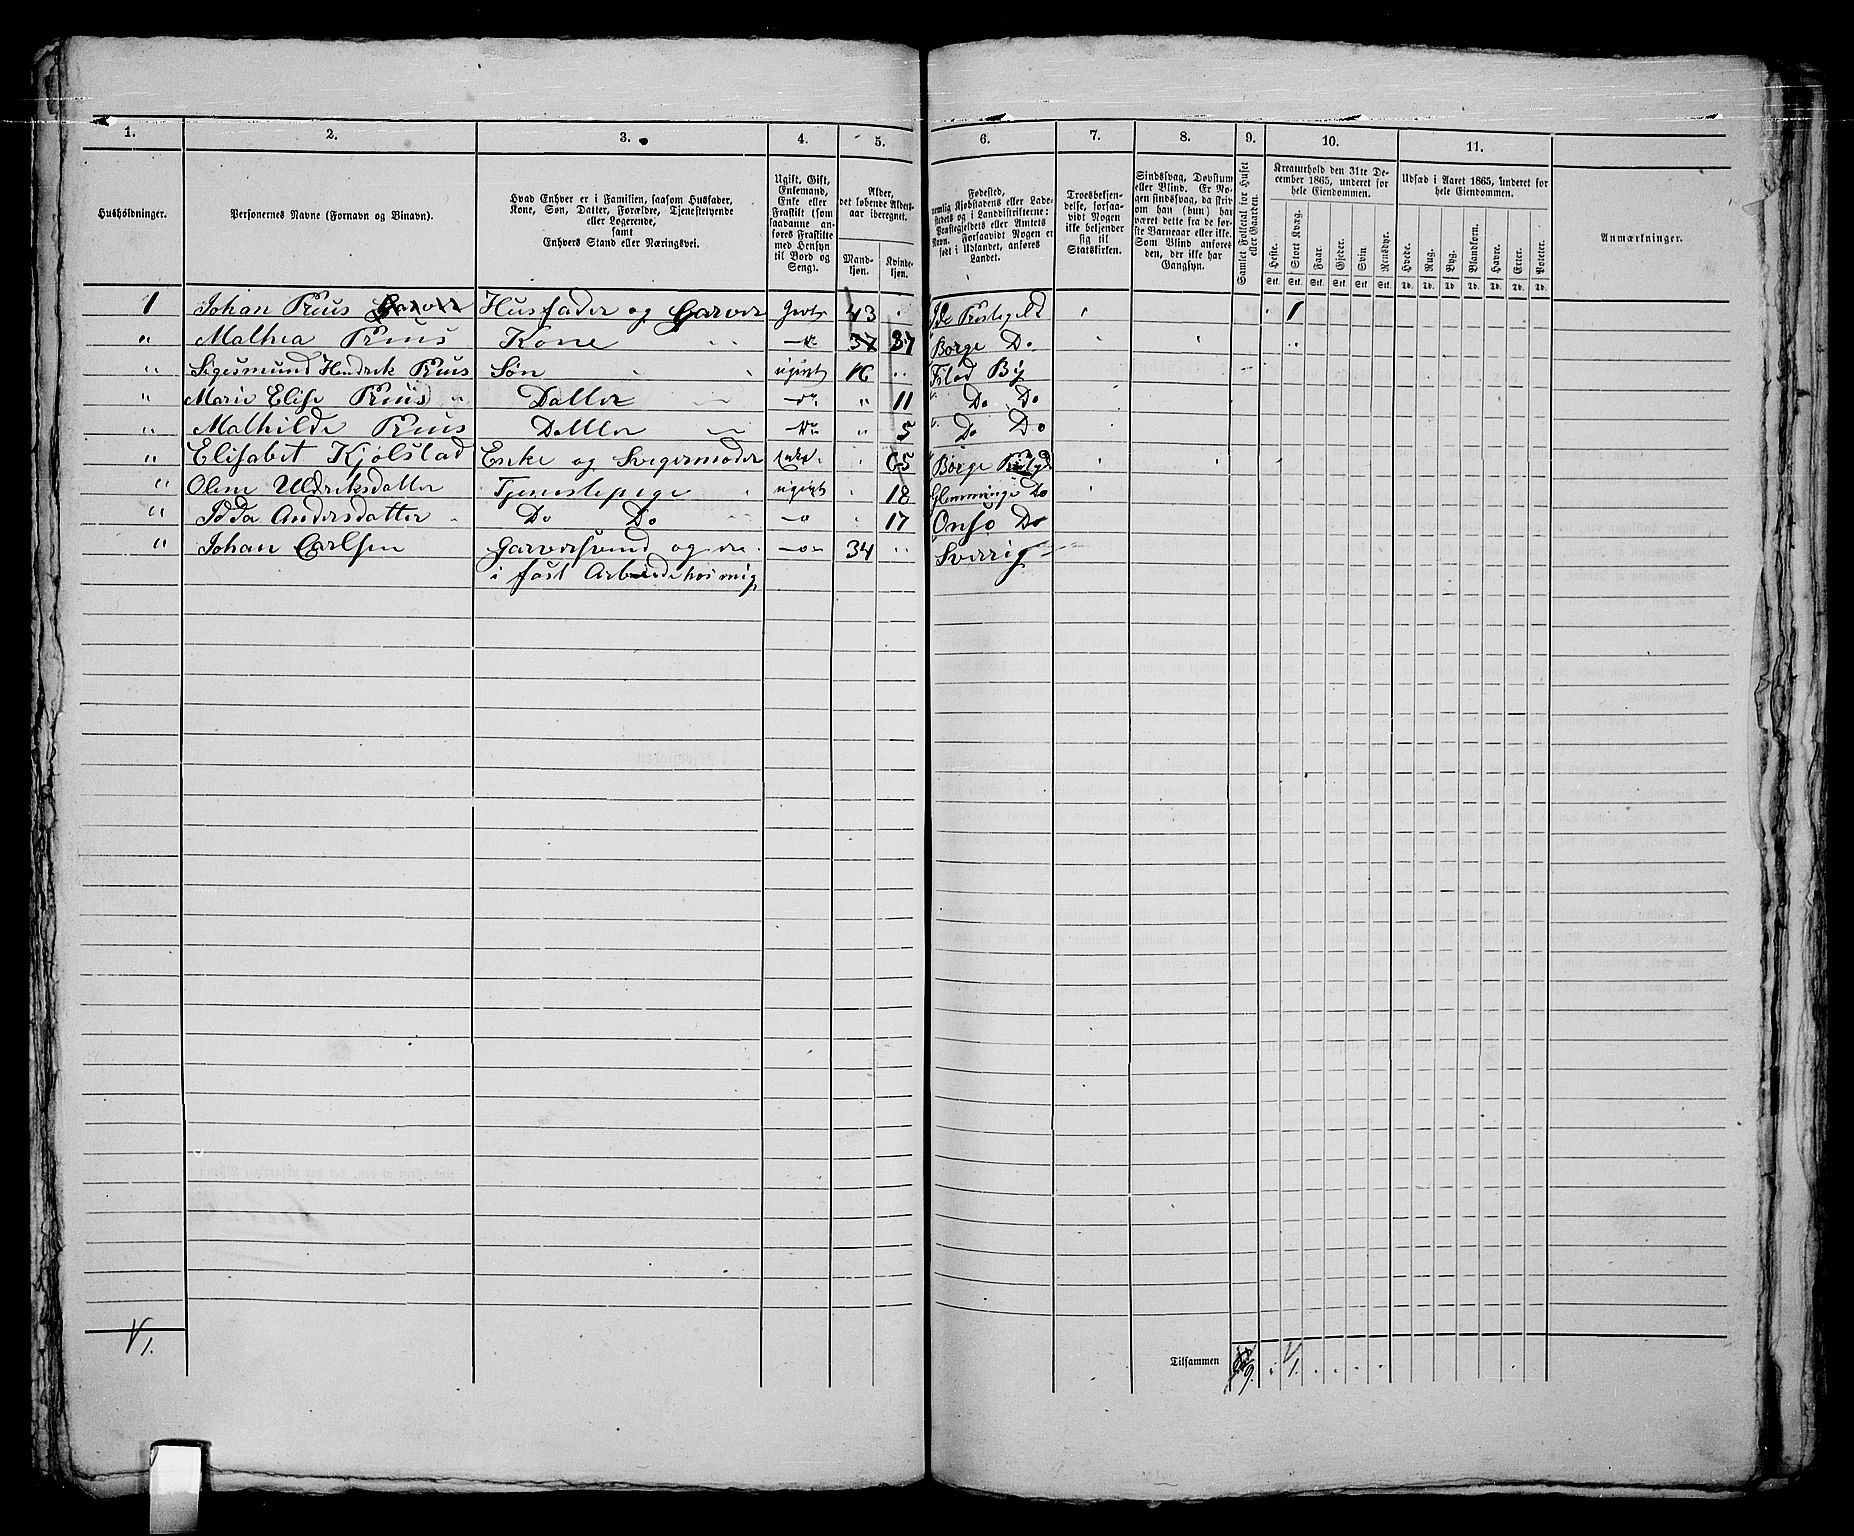 1. 2. 3. 4. 5. 6. 7. 8. 9. 10. 11.
Husholdninger.
Personernes Navne (Fornavn og Binavn).
Hvad Enhver er i Familien, saasom Husfader,
Kone, Søn, Datter, Forældre, Tjenestetyende
eller Logerende,
samt
Enhvers Stand eller Næringsvei.
Ugift, Gift,
Enkemand,
Enke eller
Fraskilt (som
saadanne an-
føres Fraskilte
med Hensyn
til Bord og
Seng).
Alder,
det løbende Alders-
aar iberegnet.
Mand-
kjøn.
Kvinde-
kjøn.
Fødested,
nemlig Kjøbstadens eller Lade-
stedets og i Landdistrikterne:
Præstegjeldets eller Amtets
Navn. Forsaavidt Nogen er
født i Udlandet, anføres
Landet.
Troesbekjen-
delse, forsaa-
vidt Nogen
ikke bekjender
sig til
Statskirken.
Sindssvag, Døvstum
eller Blind. Er No-
gen sindssvag, da skriv
om han (hun) har
været dette fra de før-
ste Barneaar eller ikke.
Som Blind anføres
den, der ikke har
Gangsyn.
Samlet Folketal for Huset
eller Gaarden.
Kreaturhold den 31te De-
cember 1865, underet for
hele Eiendommen.
Heste. Stort Kvæg. Faar. Gjeder. Svin. Rensdyr.
Stk. Stk. Stk. Stk. Stk. Stk.
Udsæd i Aaret 1865, underet for
hele Eiendommen.
Hvede. Rug. Byg. Blandkorn. Havre. Erter. Poteter.
Td. Td. Td. Td. Td. Td. Td.
Anmærkninger.
1 Johan Prüus Garver Husfader og Garver Givt 43 Ide Prestegeld 1
" Mathea Prüus Kone 37 37 Borge Do
" Sigesmund Hendrik Prüus Søn ugivt 16 Fstad By
" Marie Elise Prüüs Datter do " 11 " Do Do
" Mathilde Prüus Datter " 5 " Do Do
" Elisabet Kjølstad Enke og Svigermoder Enke 65 Borge
" Oline Uldriksdatter Tjenestepige ugivt 18 Glemminge Do
" Idda Andersdatter Do Do 17 Onsø Do
" Johan Carlsen Garversvend og er 34 Sverrig
i fast Arbeide hos mig
1.
Tilsammen 9. 1.